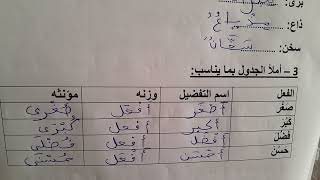 برى:
ذاع: مِذْيَاعٌ
سخن: سَخَّانٌ
3 – أملأ الجدول بما يناسب:
الفعل اسم التفضيل وزنه مؤنثه
صغُر أَصْغَر أَفْعَل صُغْرى
كبُر أكبر أفعل كُبْرى
فضُل أَفْضَل أَفْعَل فُضْلى
حسُن أَحْسَن أَفْعَل حُسْنَى